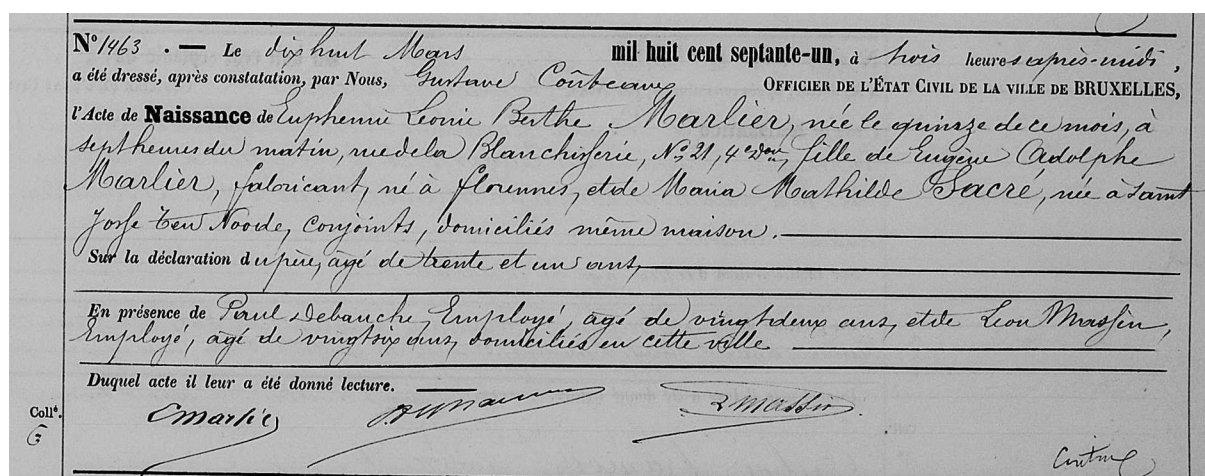 N° 1463 . — Le dix huit Mars mil huit cent septante-un, à trois heures après-midi,
a été dressé, après constatation, par Nous, Gustave OFFICIER DE L'ÉTAT CIVIL DE LA VILLE DE BRUXELLES,
l'Acte de Naissance de Euphemie Leonie Berthe Marlier, née le quinze de ce mois, à
sept heures du matin, rue de la Blanchisserie, N° 21, 4e Don, fille de Eugène Adolphe
Marlier, fabricant, né à florennes, et de Maria Mathilde Sacré, née à Saint
Josse Ten Noode, conjoints, domiciliés même maison.
Sur la déclaration du père, âgé de trente et un ans,
En présence de Paul Debauche, Employé, âgé de vingt deux ans, et de Leon Massin,
Employé, âgé de vingt six ans, domiciliés en cette ville
Duquel acte il leur a été donné lecture.
Coll.é
Marlier
L Massin